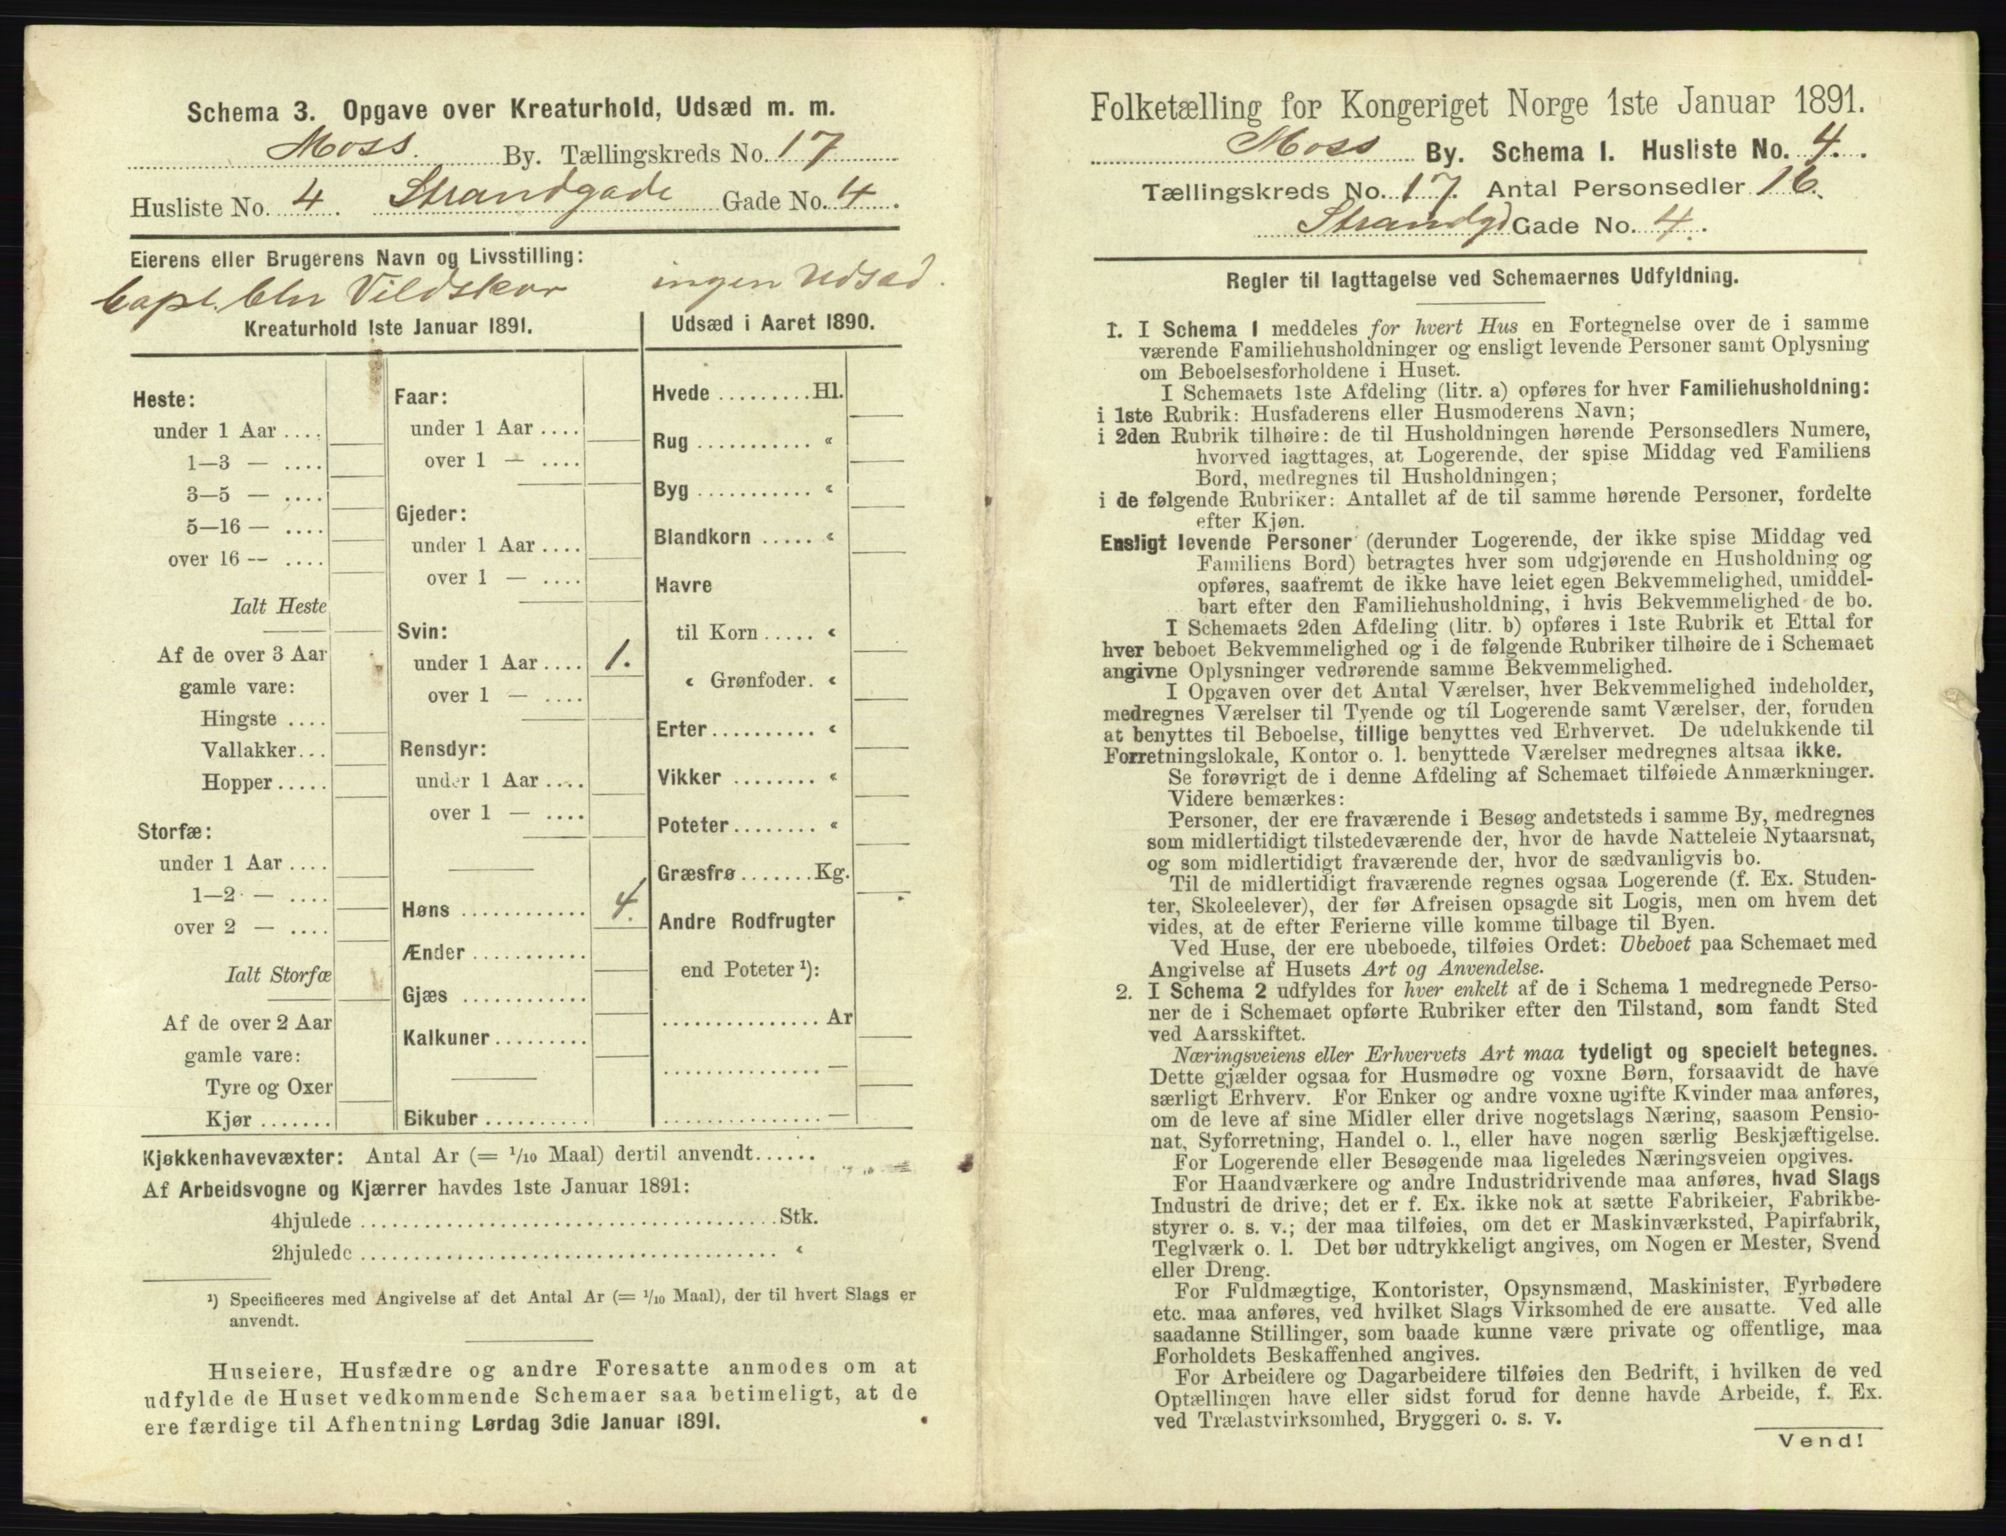 Schema 3. Opgave over Kreaturhold, Udsæd m. m.
Moss. By. Tællingskreds No. 17
Husliste No. 4. Strandgade Gade No. 4.
Eierens eller Brugerens Navn og Livsstilling:
Capt. Chr Vildskov ingen Udsæd.
Kreaturhold 1ste Januar 1891.
Udsæd i Aaret 1890.
Heste:
under 1 Aar ....
1—3 — ....
3—5 — ....
5—16 — ....
over 16 — ....
Ialt Heste
Af de over 3 Aar
gamle vare:
Hingste ....
Vallakker...
Hopper .....
Storfæ:
under 1 Aar ....
1—2 — ....
over 2 — ....
Ialt Storfæ
Af de over 2 Aar
gamle vare:
Tyre og Oxer
Kjør .......
Faar:
under 1 Aar ....
over 1 — ....
Gjeder:
under 1 Aar ....
over 1 — ....
Svin:
under 1 Aar .... 1.
over 1 — ....
Rensdyr:
under 1 Aar ....
over 1 — ....
Høns ............ 4.
Ænder ...........
Gjæs ............
Kalkuner.........
Bikuber ..........
Hvede .........Hl.
Rug ........... «
Byg ........... «
Blandkorn ..... «
Havre
til Korn ..... «
« Grønfoder. «
Erter.......... «
Vikker ........ «
Poteter........ «
Græsfrø.......Kg.
Andre Rodfrugter
end Poteter ¹):
............... Ar
............... —
............... —
Kjøkkenhavevæxter: Antal Ar (= 1/10 Maal) dertil anvendt......
Af Arbeidsvogne og Kjærrer havdes 1ste Januar 1891:
4hjulede ........................................Stk.
2hjulede ........................................ «
¹) Specificeres med Angivelse af det Antal Ar (= 1/10 Maal), der til hvert Slags er
anvendt.
Huseiere, Husfædre og andre Foresatte anmodes om at
udfylde de Huset vedkommende Schemaer saa betimeligt, at de
ere færdige til Afhentning Lørdag 3die Januar 1891.
Folketælling for Kongeriget Norge 1ste Januar 1891.
Moss By. Schema I. Husliste No. 4.
Tællingskreds No. 17. Antal Personsedler 16.
Strandgd Gade No. 4.
Regler til Iagttagelse ved Schemaernes Udfyldning.
1. I Schema I meddeles for hvert Hus en Fortegnelse over de i samme
værende Familiehusholdninger og ensligt levende Personer samt Oplysning
om Beboelsesforholdene i Huset.
I Schemaets 1ste Afdeling (litr. a) opføres for hver Familiehusholdning:
i 1ste Rubrik: Husfaderens eller Husmoderens Navn;
i 2den Rubrik tilhøire: de til Husholdningen hørende Personsedlers Numere,
hvorved iagttages, at Logerende, der spise Middag ved Familiens
Bord, medregnes til Husholdningen;
i de følgende Rubriker: Antallet af de til samme hørende Personer, fordelte
efter Kjøn.
Ensligt levende Personer (derunder Logerende, der ikke spise Middag ved
Familiens Bord) betragtes hver som udgjørende en Husholdning og
opføres, saafremt de ikke have leiet egen Bekvemmelighed, umiddel-
bart efter den Familiehusholdning, i hvis Bekvemmelighed de bo.
I Schemaets 2den Afdeling (litr. b) opføres i 1ste Rubrik et Ettal for
hver beboet Bekvemmelighed og i de følgende Rubriker tilhøire de i Schemaet
angivne Oplysninger vedrørende samme Bekvemmelighed.
I Opgaven over det Antal Værelser, hver Bekvemmelighed indeholder,
medregnes Værelser til Tyende og til Logerende samt Værelser, der, foruden
at benyttes til Beboelse, tillige benyttes ved Erhvervet. De udelukkende til
Forretningslokale, Kontor o. l. benyttede Værelser medregnes altsaa ikke.
Se forøvrigt de i denne Afdeling af Schemaet tilføiede Anmærkninger.
Videre bemærkes:
Personer, der ere fraværende i Besøg andetsteds i samme By, medregnes
som midlertidigt tilstedeværende der, hvor de havde Natteleie Nytaarsnat,
og som midlertidigt fraværende der, hvor de sædvanligvis bo.
Til de midlertidigt fraværende regnes ogsaa Logerende (f. Ex. Studen-
ter, Skoleelever), der før Afreisen opsagde sit Logis, men om hvem det
vides, at de efter Ferierne ville komme tilbage til Byen.
Ved Huse, der ere ubeboede, tilføies Ordet: Ubeboet paa Schemaet med
Angivelse af Husets Art og Anvendelse.
2. I Schema 2 udfyldes for hver enkelt af de i Schema 1 medregnede Perso-
ner de i Schemaet opførte Rubriker efter den Tilstand, som fandt Sted
ved Aarsskiftet.
Næringsveiens eller Erhvervets Art maa tydeligt og specielt betegnes.
Dette gjælder ogsaa for Husmødre og voxne Børn, forsaavidt de have
særligt Erhverv. For Enker og andre voxne ugifte Kvinder maa anføres,
om de leve af sine Midler eller drive nogetslags Næring, saasom Pensio-
nat, Syforretning, Handel o. l., eller have nogen særlig Beskjæftigelse.
For Logerende eller Besøgende maa ligeledes Næringsveien opgives.
For Haandværkere og andre Industridrivende maa anføres, hvad Slags
Industri de drive; det er f. Ex. ikke nok at sætte Fabrikeier, Fabrikbe-
styrer o. s. v.; der maa tilføies, om det er Maskinværksted, Papirfabrik,
Teglværk o. l. Det bør udtrykkeligt angives, om Nogen er Mester, Svend
eller Dreng.
For Fuldmægtige, Kontorister, Opsynsmænd, Maskinister, Fyrbødere
etc. maa anføres, ved hvilket Slags Virksomhed de ere ansatte. Ved alle
saadanne Stillinger, som baade kunne være private og offentlige, maa
Forholdets Beskaffenhed angives.
For Arbeidere og Dagarbeidere tilføies den Bedrift, i hvilken de ved
Optællingen have eller sidst forud for denne havde Arbeide, f. Ex.
ved Trælastvirksomhed, Bryggeri o. s. v.
Vend!